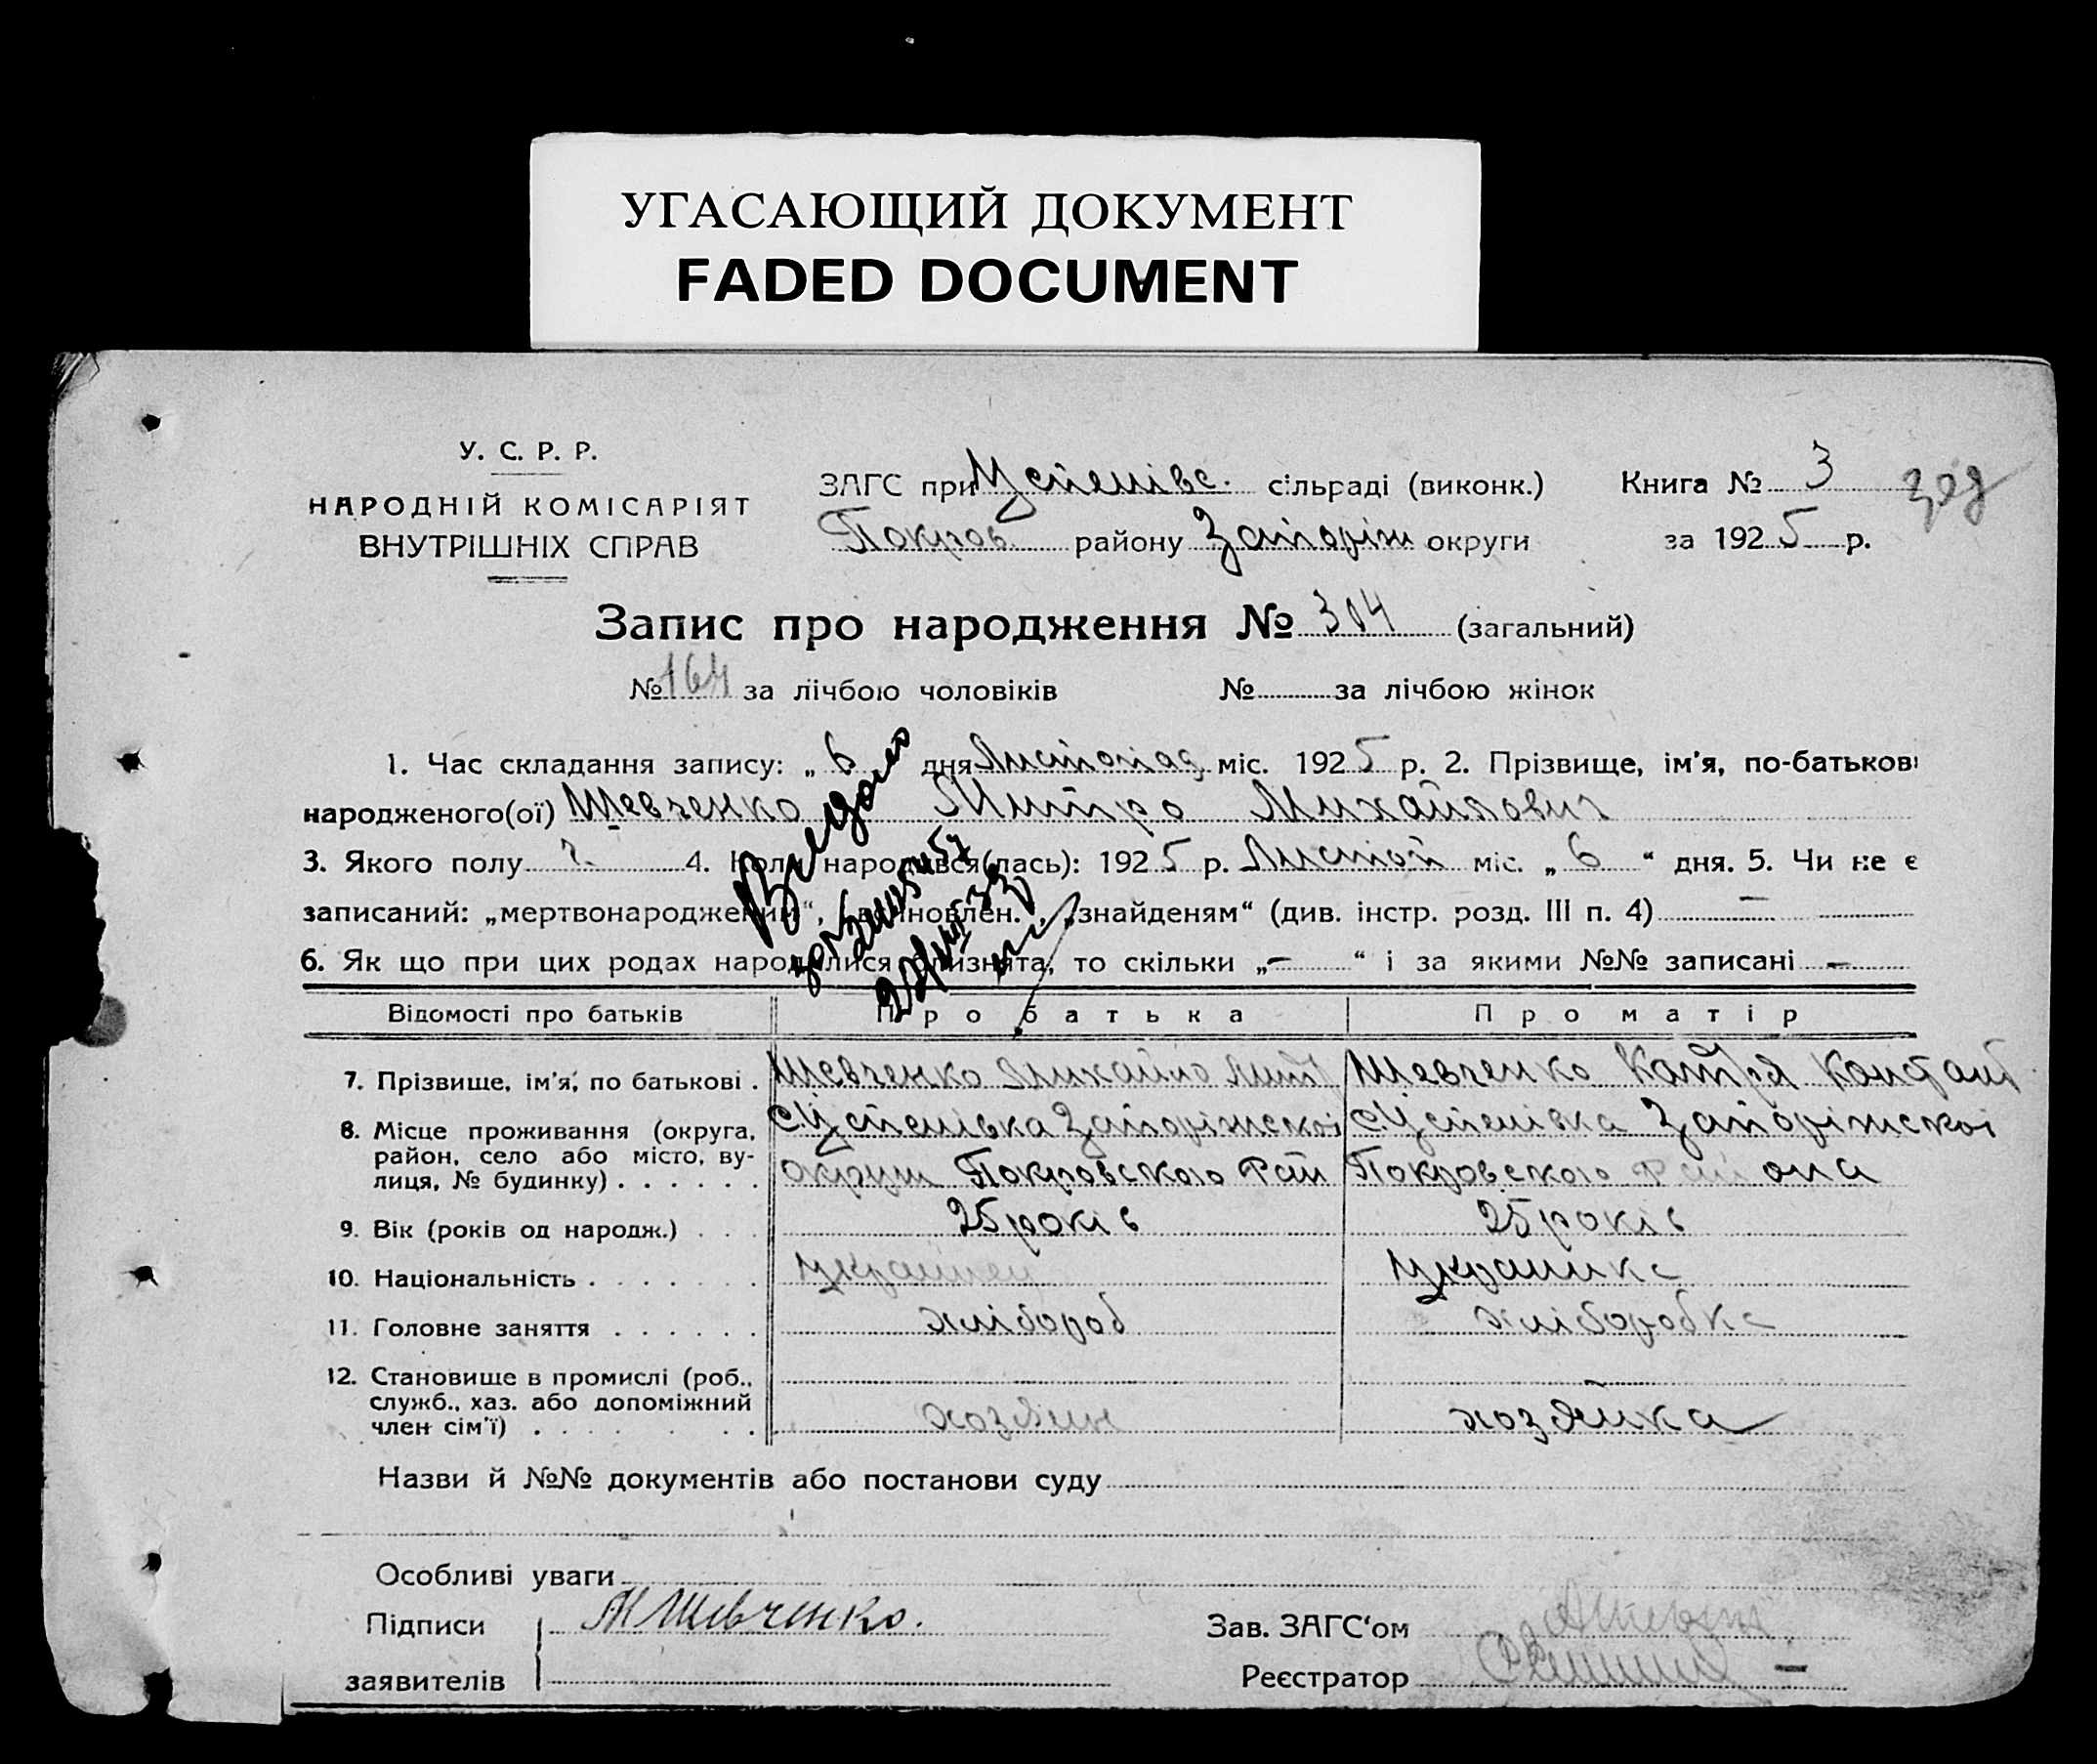 УГАСАЮЩИЙ ДОКУМЕНТ
FADED DOCUMENT
У. С. Р. Р.
НАРОДНІЙ КОМІСАРІЯТ
ВНУТРІШНІХ СПРАВ
ЗАГС при Успенівс. сільраді (виконк.)
Покров району Запоріж округи
Книга № 3
за 1925 р.
Запис про народження № 304 (загальний)
№ 164 за лічбою чоловіків № за лічбою жінок
1. Час складання запису: „ 6 дня Листопад міс. 1925 р. 2. Прізвище, ім'я, по-батькові
народженого(ої) Шевченко Митро Михайлович
3. Якого полу ч. 4. Коли народився(лась): 1925 р. Листоп міс. „ 6 “ дня. 5. Чи не є
записаний: „мертвонароджений“, „ , „знайденям“ (див. інстр. розд. III п. 4) —
6. Як що при цих родах народилися близнята, то скільки „ — “ і за якими №№ записані —
Видано
Відомості про батьків Про батька Про матір
7. Прізвище, ім'я, по батькові . Шевченко Михайло Митр Шевченко Катря
8. Місце проживання (округа, с. Успенівка Запоріжскоі с. Успенівка Запоріжскоі
район, село або місто, ву-
лиця, № будинку) . . . . . . округи Покровського Рай Покровського Раиона
9. Вік (років од народж.) . . . 25 років 25 років
10. Національність . . . . . . . українец украинка
11. Головне заняття . . . . . . хлібороб хліборобка
12. Становище в промислі (роб.,
служб., хаз. або допоміжний
член сім'ї) . . . . . . . хозяин хозяйка
Назви й №№ документів або постанови суду
Особливі уваги
Підписи М Шевченко.
заявителів
Зав. ЗАГС‘ом
Реєстратор